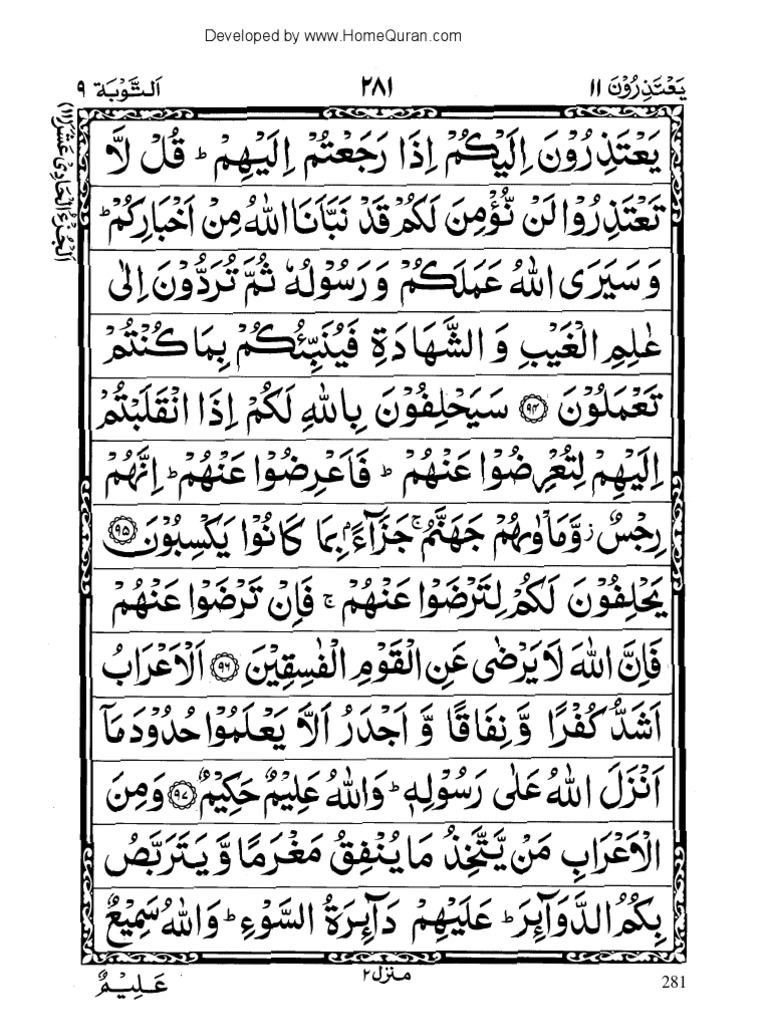 Developed by www.HomeQuran.com
يَعْتَذِرُوْنَ ١١
٢٨١
اَلتَّوْبَة ٩
اَلْجُزْءُ الْحَادِىْ عَشَرَ (١١)
يَعْتَذِرُوْنَ اِلَيْكُمْ اِذَا رَجَعْتُمْ اِلَيْهِمْ ؕ قُلْ لَّا
تَعْتَذِرُوْا لَنْ نُّؤْمِنَ لَكُمْ قَدْ نَبَّاَنَا اللّٰهُ مِنْ اَخْبَارِكُمْ ؕ
وَ سَيَرَى اللّٰهُ عَمَلَكُمْ وَ رَسُوْلُهٗ ثُمَّ تُرَدُّوْنَ اِلٰى
عٰلِمِ الْغَيْبِ وَ الشَّهَادَةِ فَيُنَبِّئُكُمْ بِمَا كُنْتُمْ
تَعْمَلُوْنَ ۝٩٤ سَيَحْلِفُوْنَ بِاللّٰهِ لَكُمْ اِذَا انْقَلَبْتُمْ
اِلَيْهِمْ لِتُعْرِضُوْا عَنْهُمْ ؕ فَاَعْرِضُوْا عَنْهُمْ ؕ اِنَّهُمْ
رِجْسٌ ؗ وَّمَاْوٰىهُمْ جَهَنَّمُ ۚ جَزَآءًۢ بِمَا كَانُوْا يَكْسِبُوْنَ ۝٩٥
يَحْلِفُوْنَ لَكُمْ لِتَرْضَوْا عَنْهُمْ ۚ فَاِنْ تَرْضَوْا عَنْهُمْ
فَاِنَّ اللّٰهَ لَا يَرْضٰى عَنِ الْقَوْمِ الْفٰسِقِيْنَ ۝٩٦ اَلْاَعْرَابُ
اَشَدُّ كُفْرًا وَّ نِفَاقًا وَّ اَجْدَرُ اَلَّا يَعْلَمُوْا حُدُوْدَ مَاۤ
اَنْزَلَ اللّٰهُ عَلٰى رَسُوْلِهٖ ؕ وَاللّٰهُ عَلِيْمٌ حَكِيْمٌ ۝٩٧ وَمِنَ
الْاَعْرَابِ مَنْ يَّتَّخِذُ مَا يُنْفِقُ مَغْرَمًا وَّ يَتَرَبَّصُ
بِكُمُ الدَّوَآئِرَ ؕ عَلَيْهِمْ دَآئِرَةُ السَّوْءِ ؕ وَاللّٰهُ سَمِيْعٌ
عَلِيْمٌ
منزل ٢
281